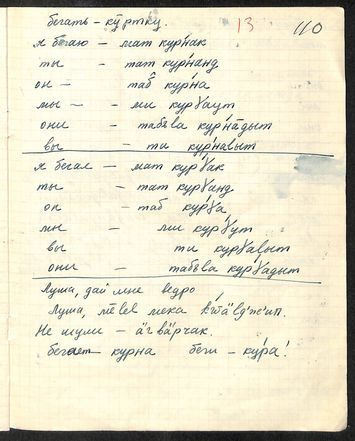 бегать – кӯртку. 13 110
я бегаю – мат курнак
ты – тат курнанд
он – таб курна
мы – – ми курɣаут
они – табъва курна̄дыт
вы – та курналыт
я бегал – мат курɣак
ты – тат курɣанд
он – таб курɣа
мы – ми курɣут
вы ти курɣалыт
они – табъва курɣадыт
Луша, дай мне ведро
Луша, мека
Не шуми – ӓгвӓрчак.
бегает – курна беги – кура!